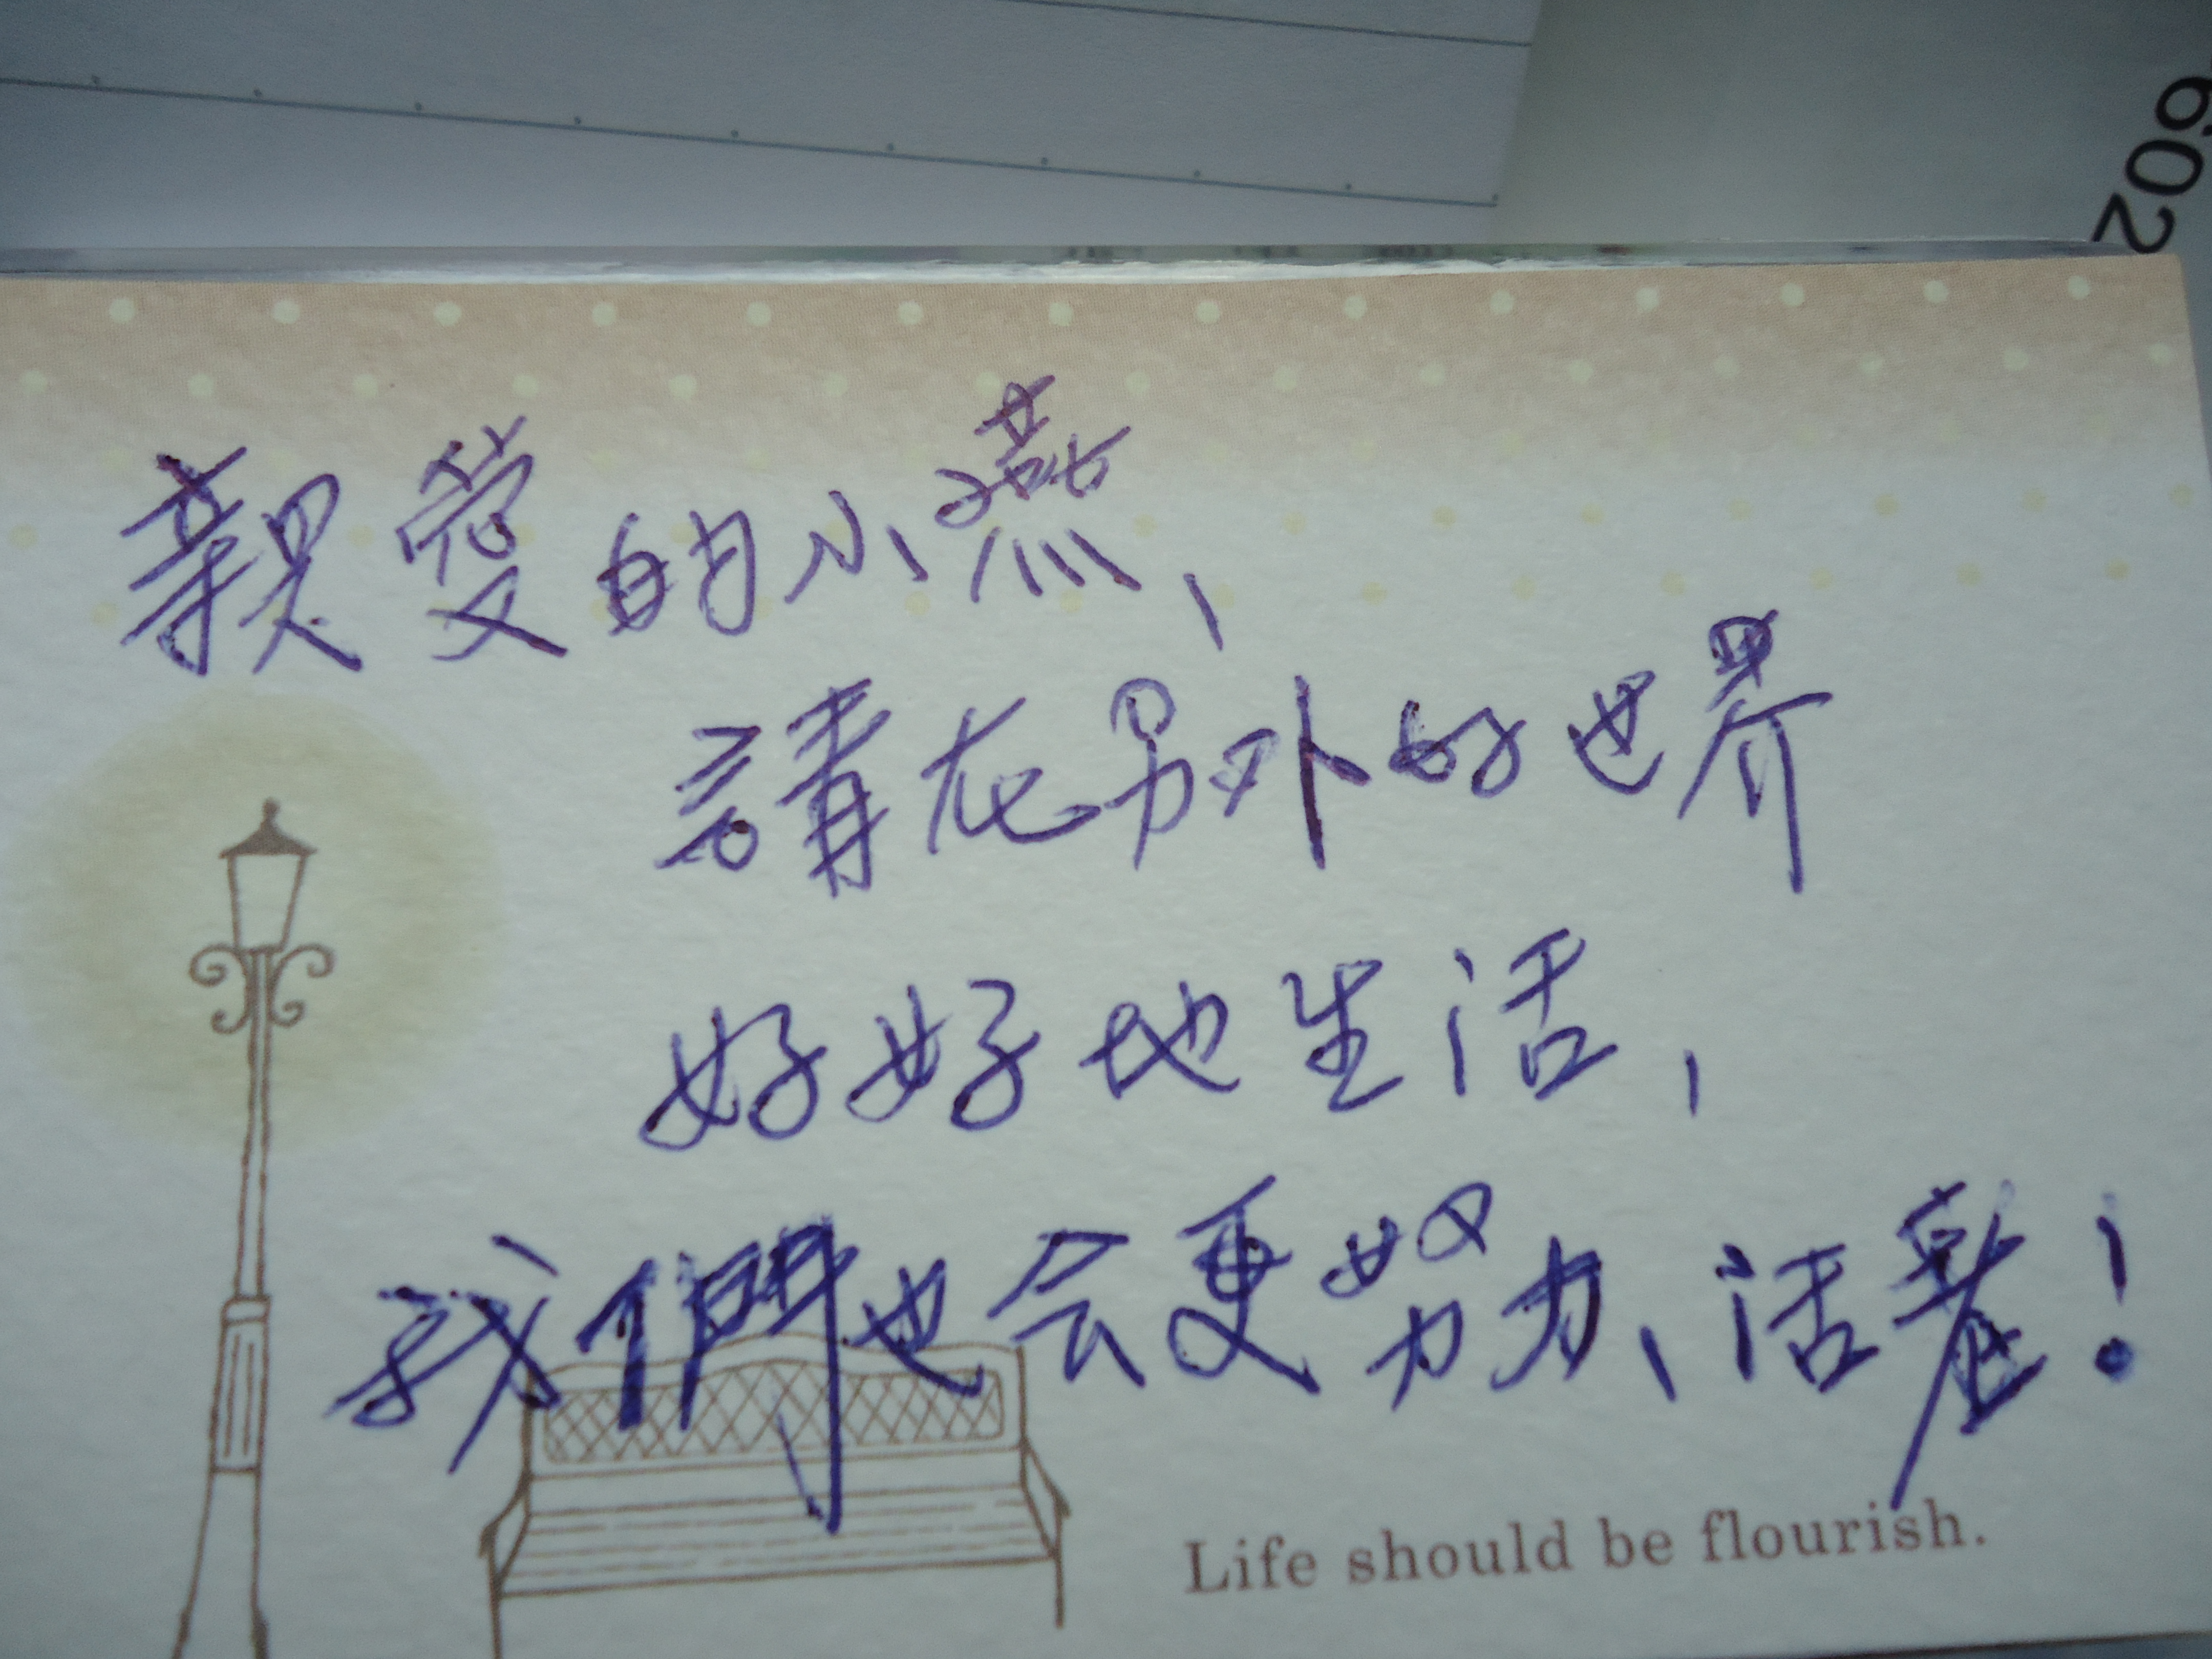 602
親愛的小燕、
請在另外的世界
好好地生活，
我們也会更努力、活著！
Life should be flourish.